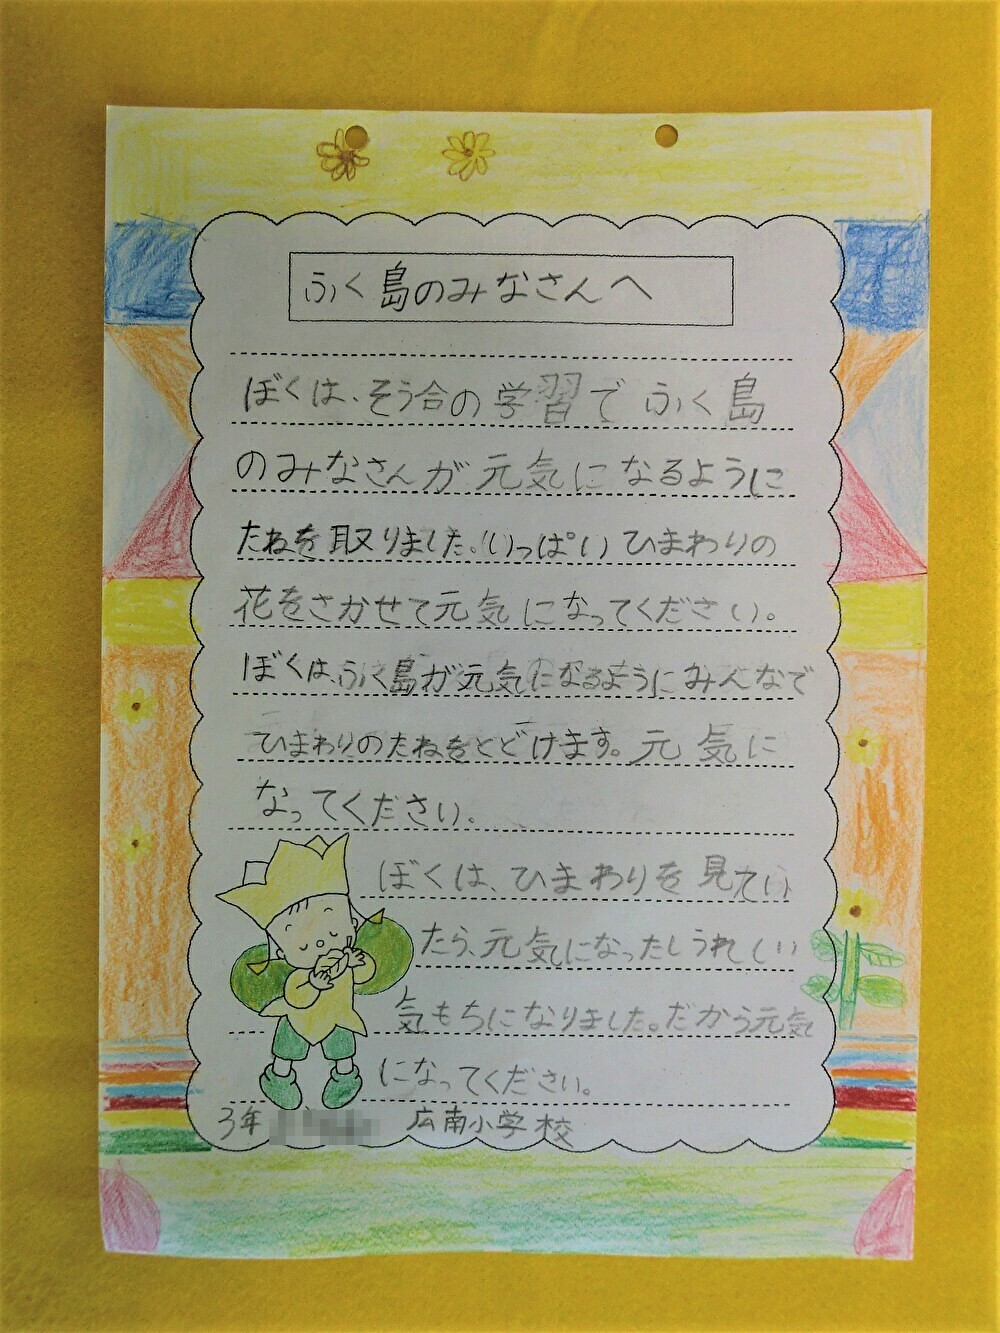 ふく島のみなさんへ
ぼくは、そう合の学習でふく島
のみなさんが元気になるように
たねを取りました。いっぱいひまわりの
花をさかせて元気になってください。
ぼくは、ふく島が元気になるようにみんなで
ひまわりのたねをとどけます。元気に
なってください。
ぼくは、ひまわりを見てい
たら、元気になったしうれしい
気もちになりました。だから元気
になってください。
3年 広南小学校